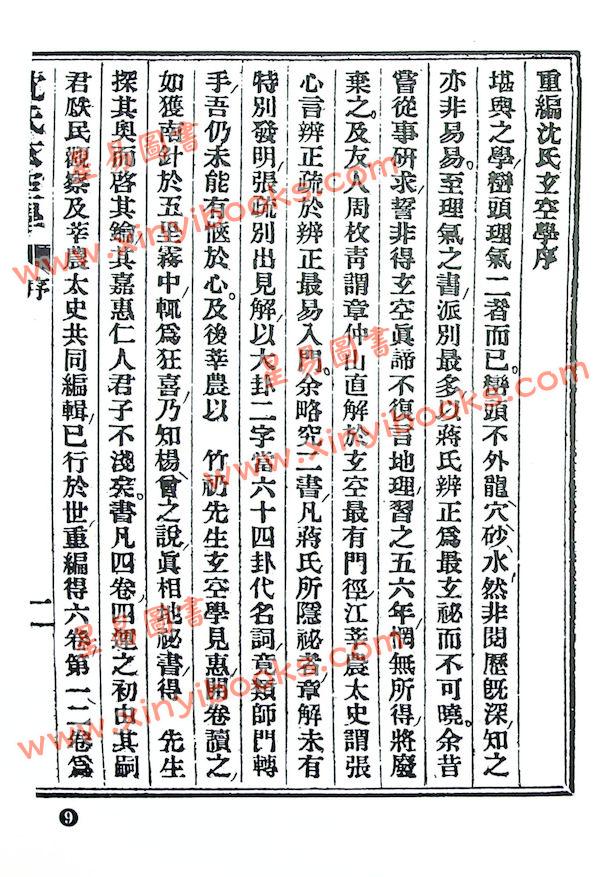 重編沈氏玄空學序
堪輿之學巒頭理氣二者而已巒頭不外龍穴砂水然非閱歷旣深知之
亦非易易至理氣之書派別最多以蔣氏辨正爲最玄祕而不可曉余昔
嘗從事研求誓非得玄空眞諦不復言地理習之五六年罔無所得將廢
棄之及友人周枚靑謂章仲山直解於玄空最有門徑江莘農太史謂張
心言辨正疏於辨正最易入門余略究二書凡蔣氏所隱祕者章解未有
特別發明張疏別出見解以大卦二字當六十四卦代名詞竟類師門轉
手吾仍未能有愜於心及後莘農以 竹礽先生玄空學見惠開卷讀之
如獲南針於五里霧中輒爲狂喜乃知楊曾之說眞相地祕書得 先生
探其奧而啓其鑰其嘉惠仁人君子不淺矣書凡四卷四運之初由其嗣
君瓞民觀察及莘農太史共同編輯已行於世重編得六卷第一二卷爲
沈氏玄空學 序 一
9
星易圖書
www.xinyibooks.com
星易圖書
www.xinyibooks.com
星易圖書
www.xinyibooks.com